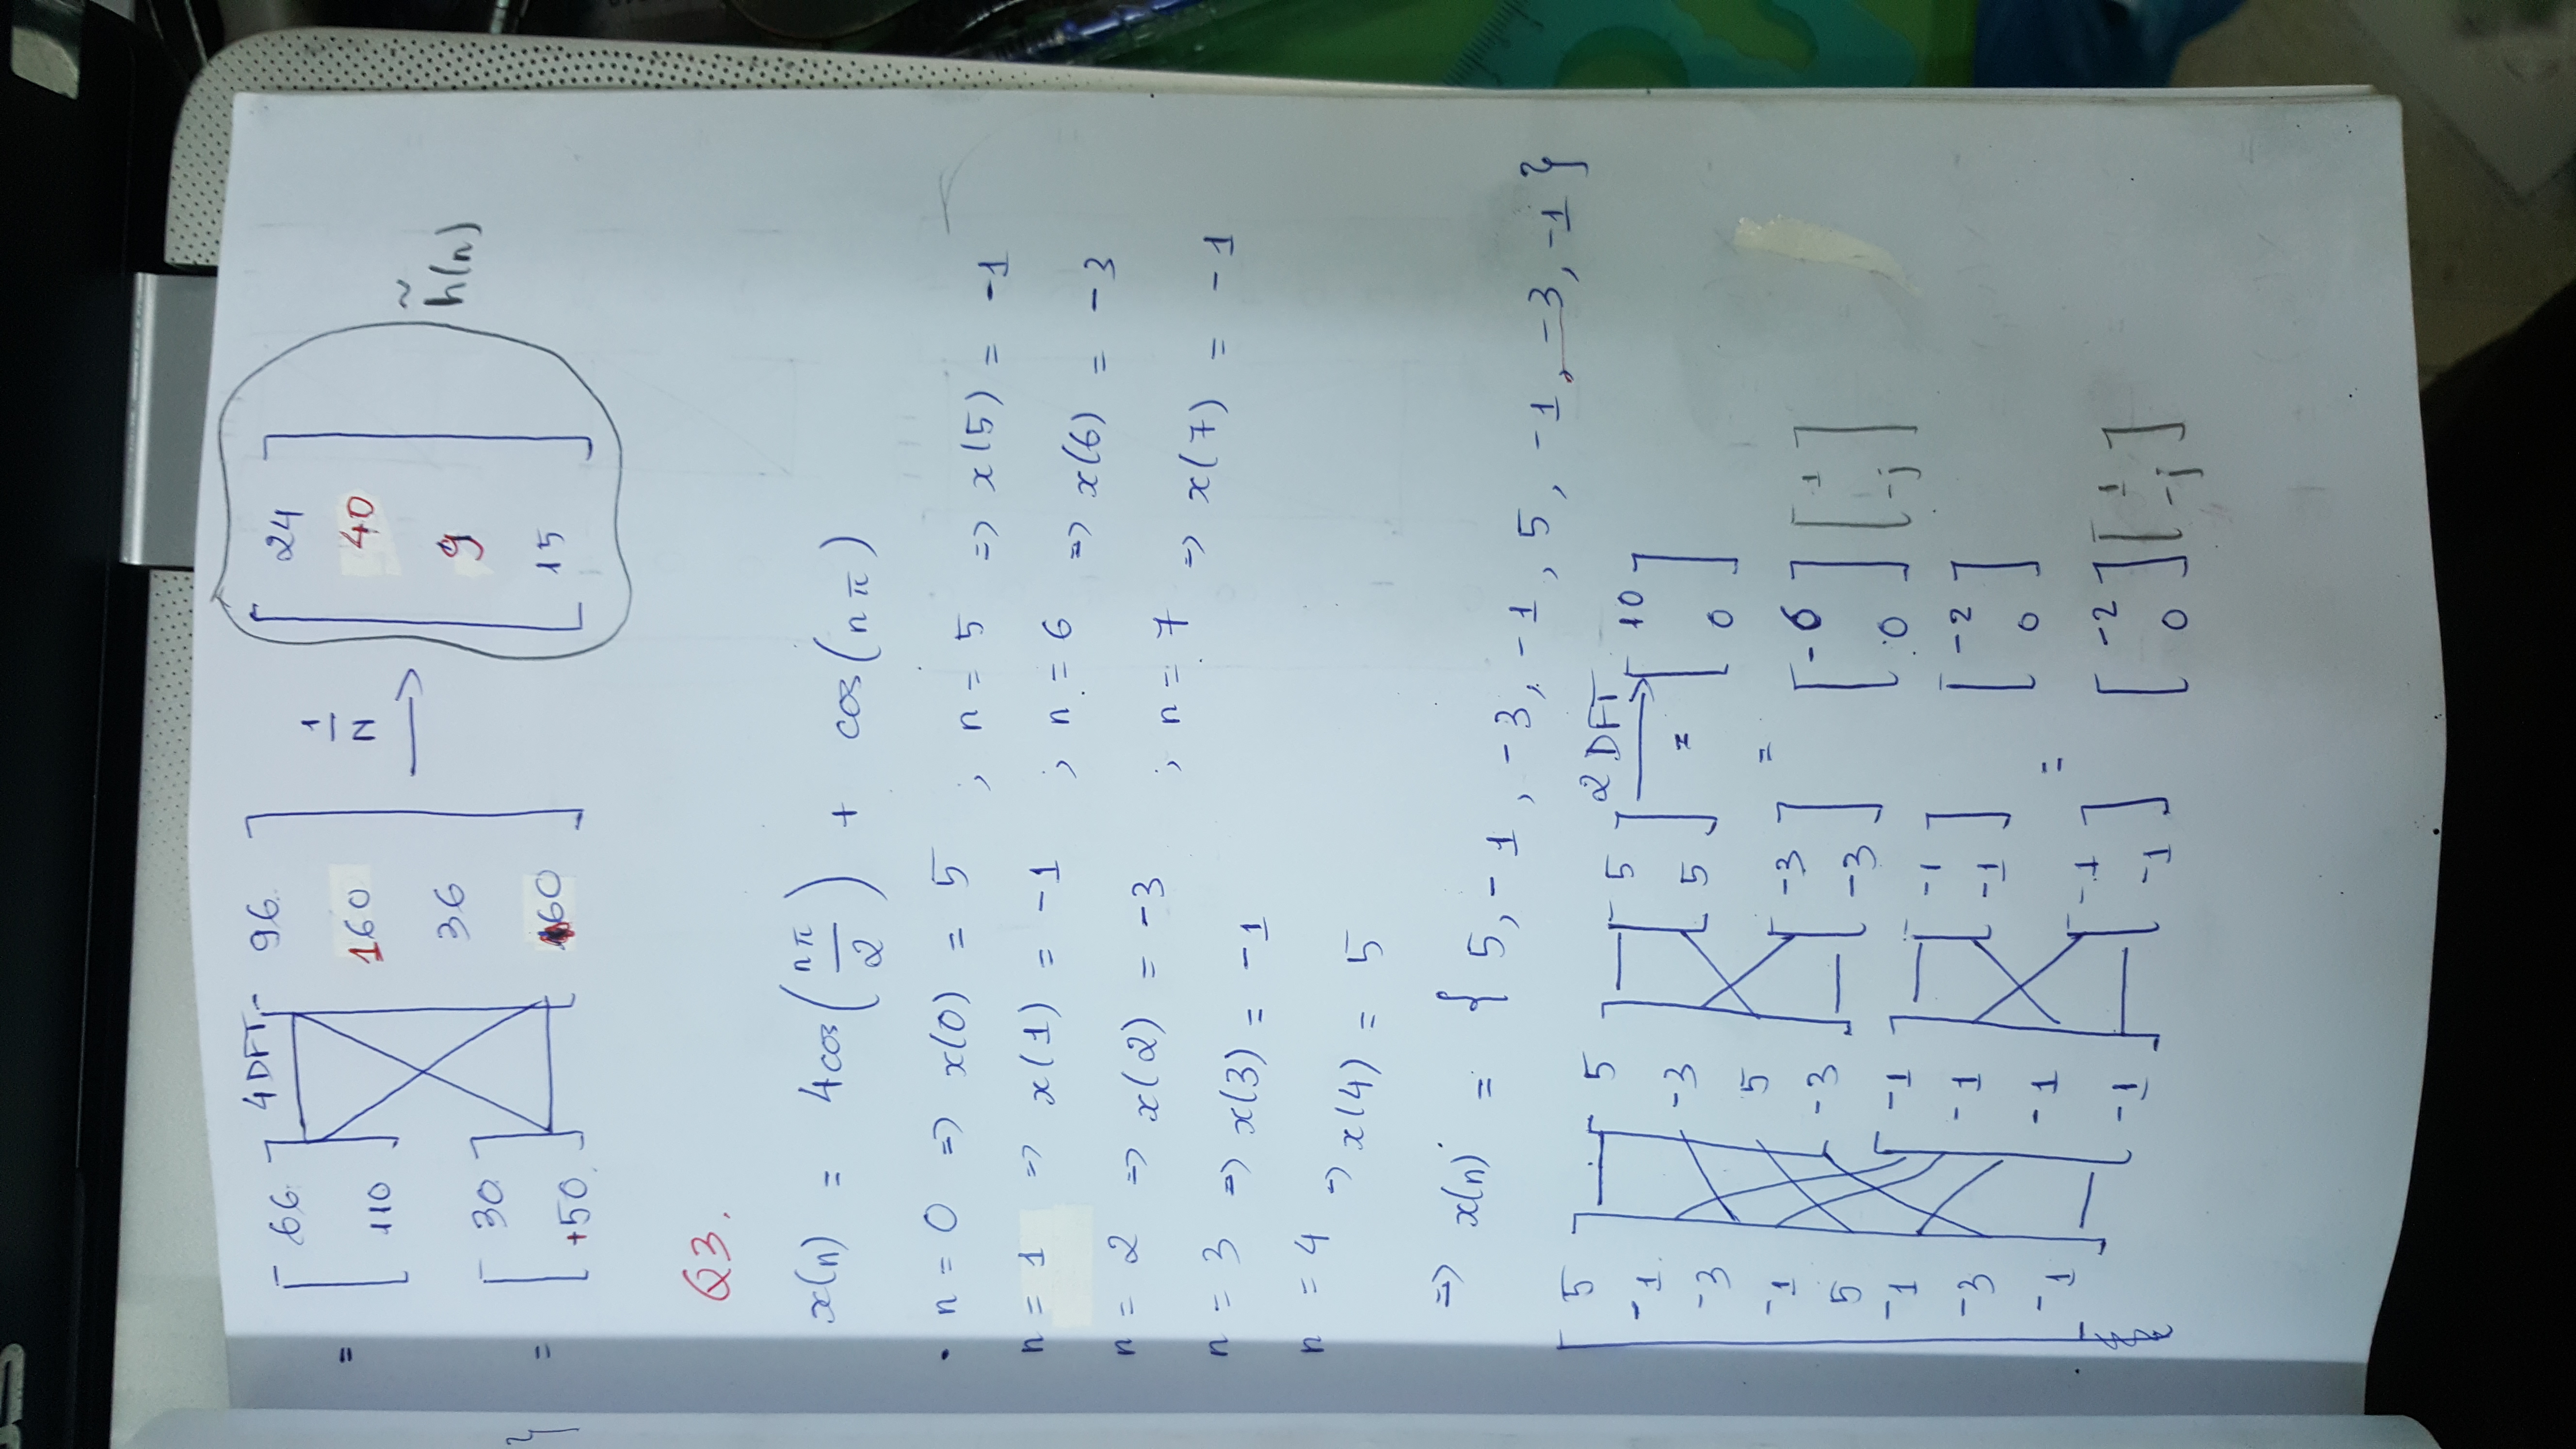 = [ 66 110 ] 4 DFT [ 96 160 36 60 ] 1/N → [ 24 40 9 15 ] h̃(n)
= [ 30 +50 ]
Q3.
x(n) = 4cos(nπ/2) + cos(nπ)
• n = 0 => x(0) = 5 ; n = 5 => x(5) = -1
n = 1 => x(1) = -1 ; n = 6 => x(6) = -3
n = 2 => x(2) = -3 ; n = 7 => x(7) = -1
n = 3 => x(3) = -1
n = 4 => x(4) = 5
=> x(n) = { 5, -1, -3, -1, 5, -1, -3, -1 }
[ 5 -1 -3 -1 5 -1 -3 -1 ]
[ 5 -3 5 -3 ]
[ -1 -1 -1 -1 ]
[ 5 5 ] 2 DFT → = [ 10 0 ]
[ -3 -3 ] = [ -6 0 ] [ 1 -j ]
[ -1 -1 ] [ -2 0 ]
[ -1 -1 ] = [ -2 0 ] [ 1 -j ]